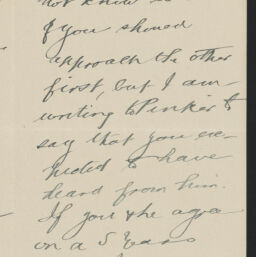 not know
if you should
approach the other
first, but I am
writing to Pinker to
say that you ex-
pected to have
heard from him.
If you & he agree
on a 5 years